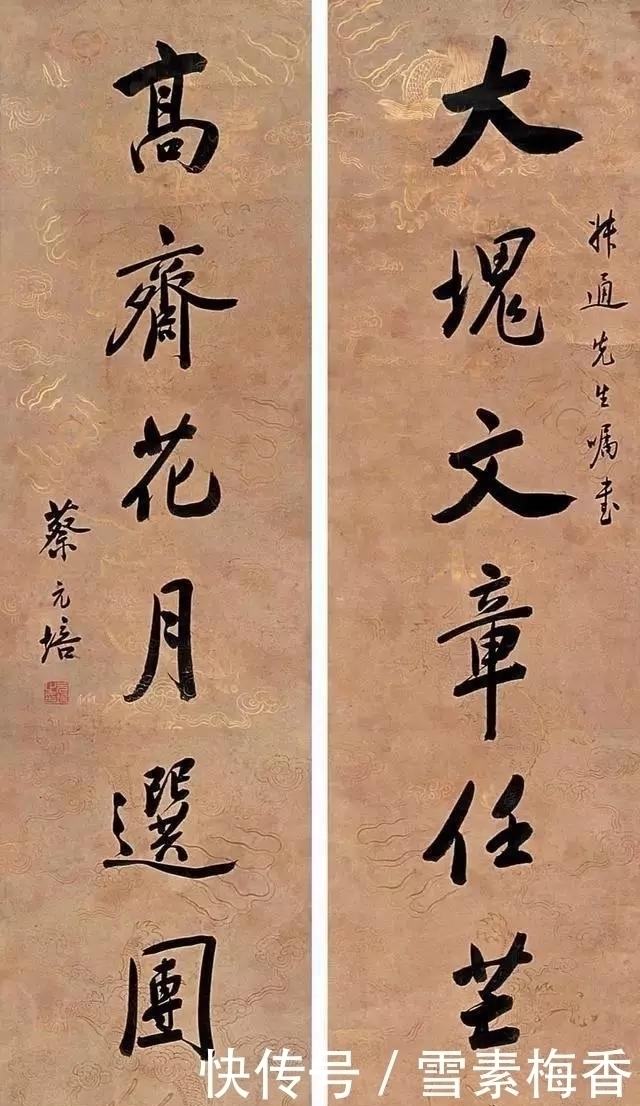 叔通先生嘱書
大塊文章任芒
髙齋花月選團
蔡元培
快传号 / 雪素梅香